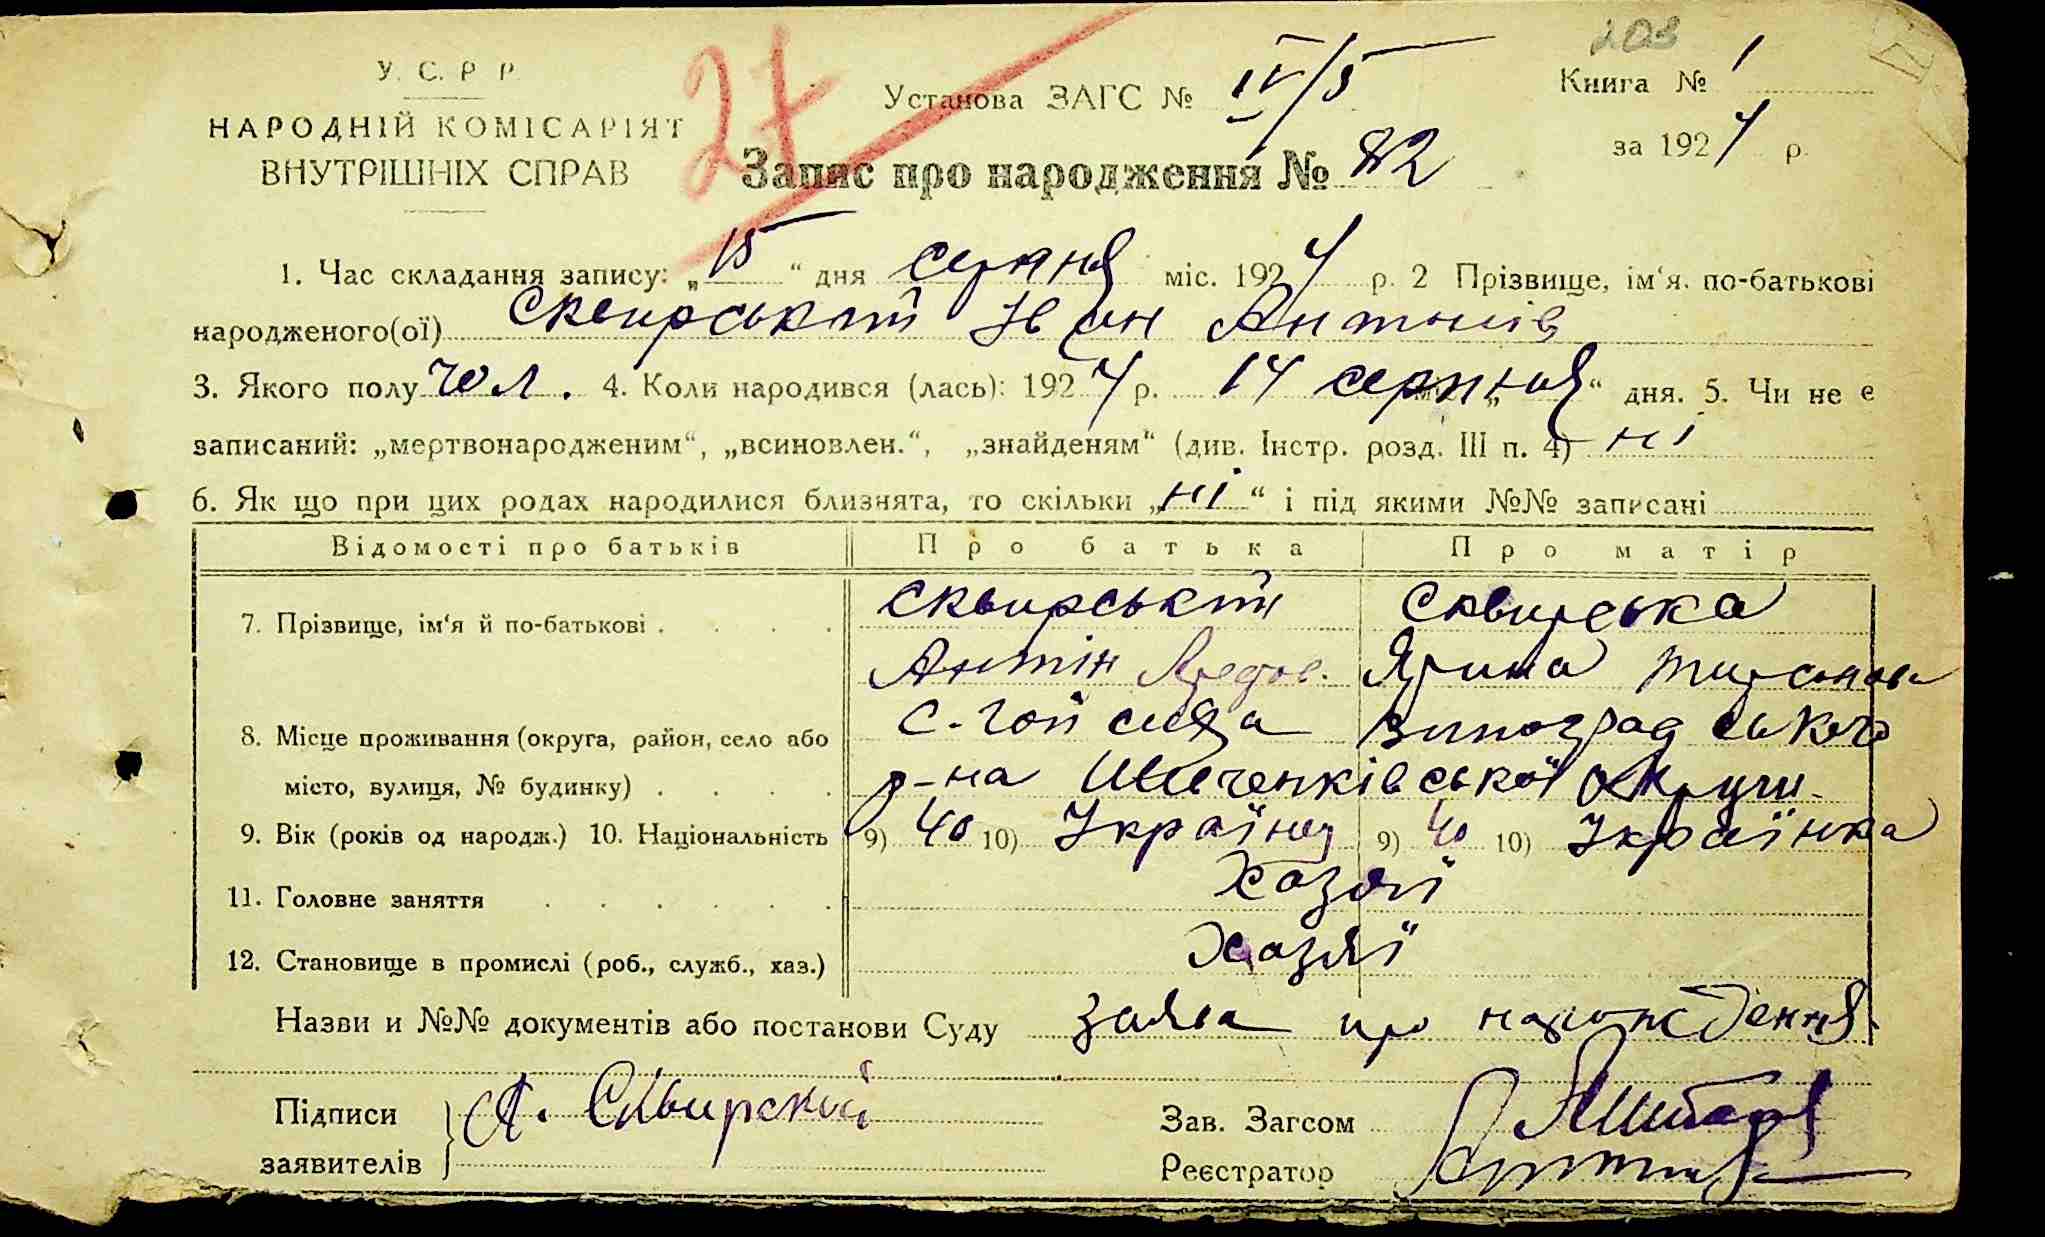 203
У. С. Р. Р.
Установа ЗАГС № IV/5
Книга № 1
НАРОДНІЙ КОМІСАРІЯТ
ВНУТРІШНІХ СПРАВ
за 1924 р.
Запис про народження № 82
1. Час складання запису: „15“ дня серпня міс. 1924 р. 2 Прізвище, ім‘я. по-батькові
народженого(ої) Сквирський Іван Антонів
3. Якого полу чол. 4. Коли народився (лась): 1924 р. 14 серпня“ дня. 5. Чи не є
записаний: „мертвонародженим“, „всиновлен.“, „знайденям“ (див. Інстр. розд. III п. 4) ні
6. Як що при цих родах народилися близнята, то скільки „ні“ і під якими №№ записані
Відомості про батьків Про батька Про матір
Сквирський Сквирська
7. Прізвище, ім‘я й по-батькові
Антін Ярина
8. Місце проживання (округа, район, село або с. Виноградського
місто, вулиця, № будинку) р-на Шевченківської Округи
9. Вік (років од народж.) 10. Національність 9) 40 10) Українец 9) 40 10) Українка
11. Головне заняття Хазяї
12. Становище в промислі (роб., служб., хаз.) Хазяї
Назви и №№ документів або постанови Суду заява про народження
Підписи А. Сквирский
Зав. Загсом
заявителів
Реєстратор